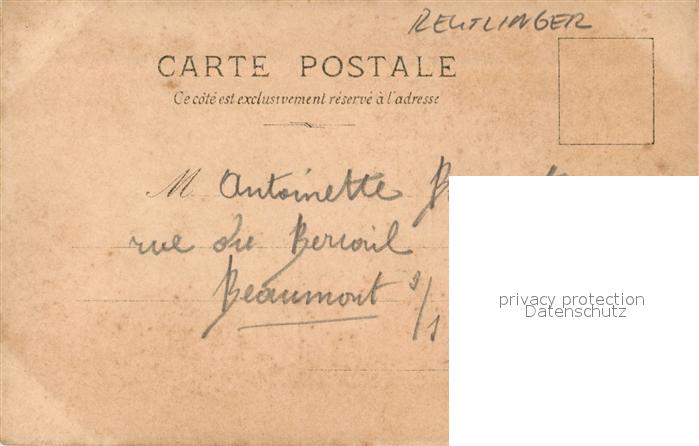 REUTLINGER
CARTE POSTALE
Ce côté est exclusivement réservé à l'adresse
M Antoinette
rue du
Beaumont s/
privacy protection
Datenschutz